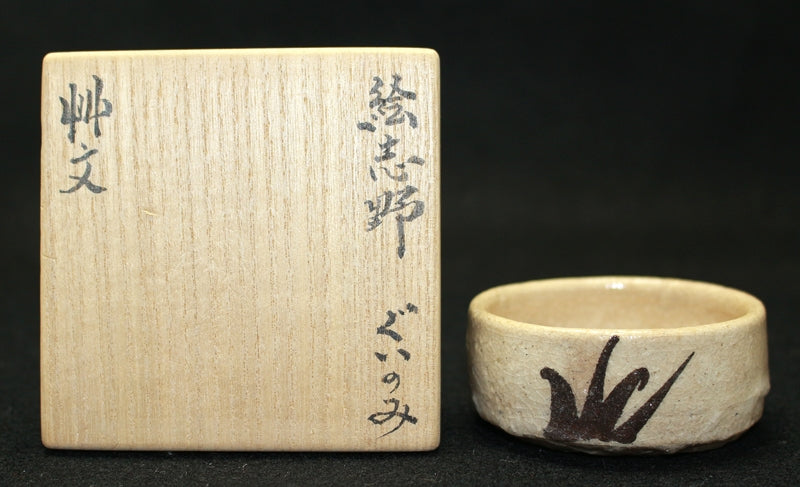 絵志野 ぐいのみ
艸文